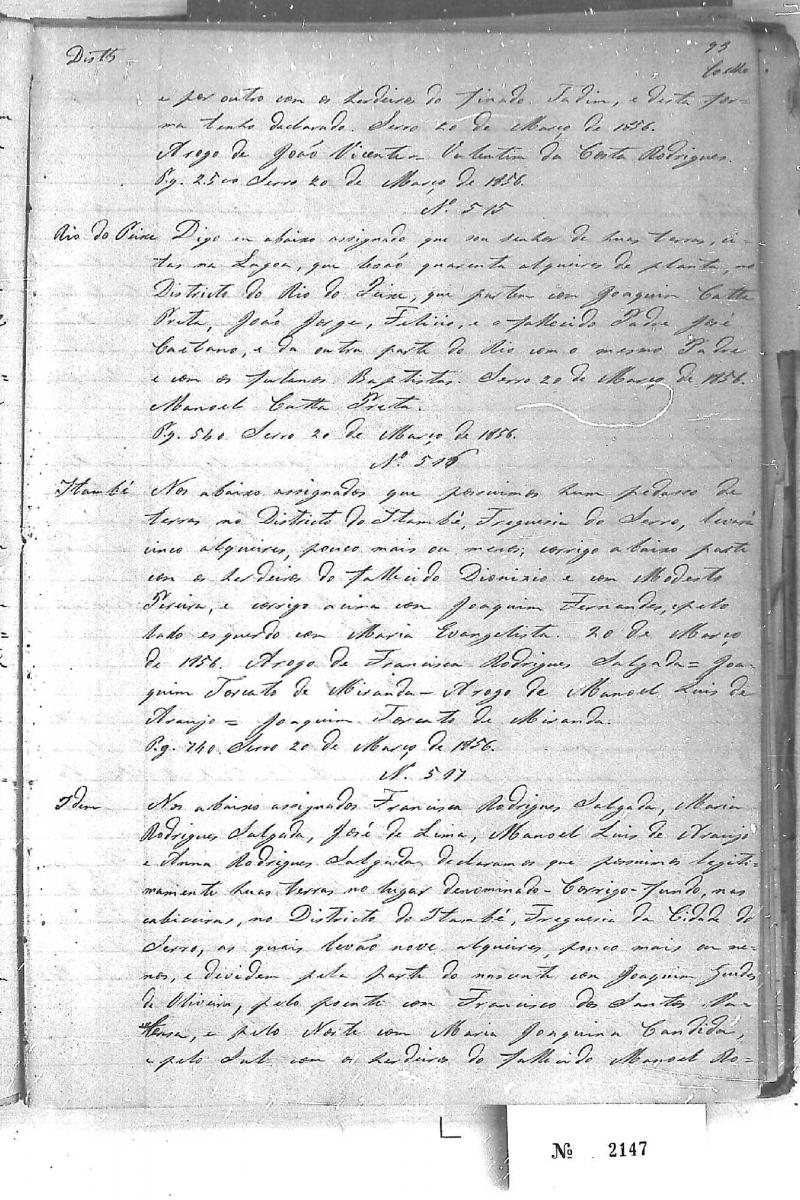 Dist.os
93
Coelho
e por outro com os herdeiros do finado Jadim, e desta for-
ma tenho declarado. Serro 20 de Março de 1856.
Arogo de João Vicente = Valentim da Costa Rodrigues.
Pg. 2500 Serro 20 de Março de 1856.
Nº 515
Rio do Peixe Digo eu abaixo assignado que sou senhor de huas terras, ci-
tas na Lagoa, que levão quarenta alqueires de planta, no
Districto do Rio do Peixe, que partem com Joaquim Catta
Preta, João Jorge, Felicio, e o fallecido Padre José
Caetano, e da outra parte do Rio com o mesmo Padre
e com os fulanos Baptistas. Serro 20 de Março de 1856.
Manoel Catta Preta.
Pg. 540 Serro 20 de Março de 1856.
Nº 516
Itambé Nos abaixo assignados que possuimos hum pedasso de
terras no Districto do Itambé, Freguesia do Serro, levará
cinco alqueires, pouco mais ou menos; corrigo abaixo parte
com os herdeiros do fallecido Dionizio e com Modesto
Pereira, e corrigo acima com Joaquim Fernandes, e pelo
lado esquerdo com Maria Evangelista. 20 de Março
de 1856. Arogo de Francisca Rodrigues Salgada = Joa-
quim Torcato de Miranda = Arogo de Manoel Luis de
Araujo = Joaquim Torcato de Miranda.
Pg. 740. Serro 20 de Março de 1856.
N. 517
Idem Nos abaixo assignados Francisca Rodrigues Salgada, Maria
Rodrigues Salgada, José de Lima, Manoel Luis de Araujo
e Anna Rodrigues Salgada declaramos que possuimos legiti-
mamente huas terras no lugar denominado - Corrigo - fundo, nas
cabiceiras, no Districto do Itambé, Freguesia da Cidade do
Serro, as quais levão nove alqueires, pouco mais ou me-
nos, e dividem pela parte do nascente com Joaquim Guedes
de Oliveira, pelo poente com Francisco dos Santos
e pelo Norte com Maria Joaquina Candida,
e pelo Sul com os herdeiros do fallecido Manoel Ro-
Nº 2147